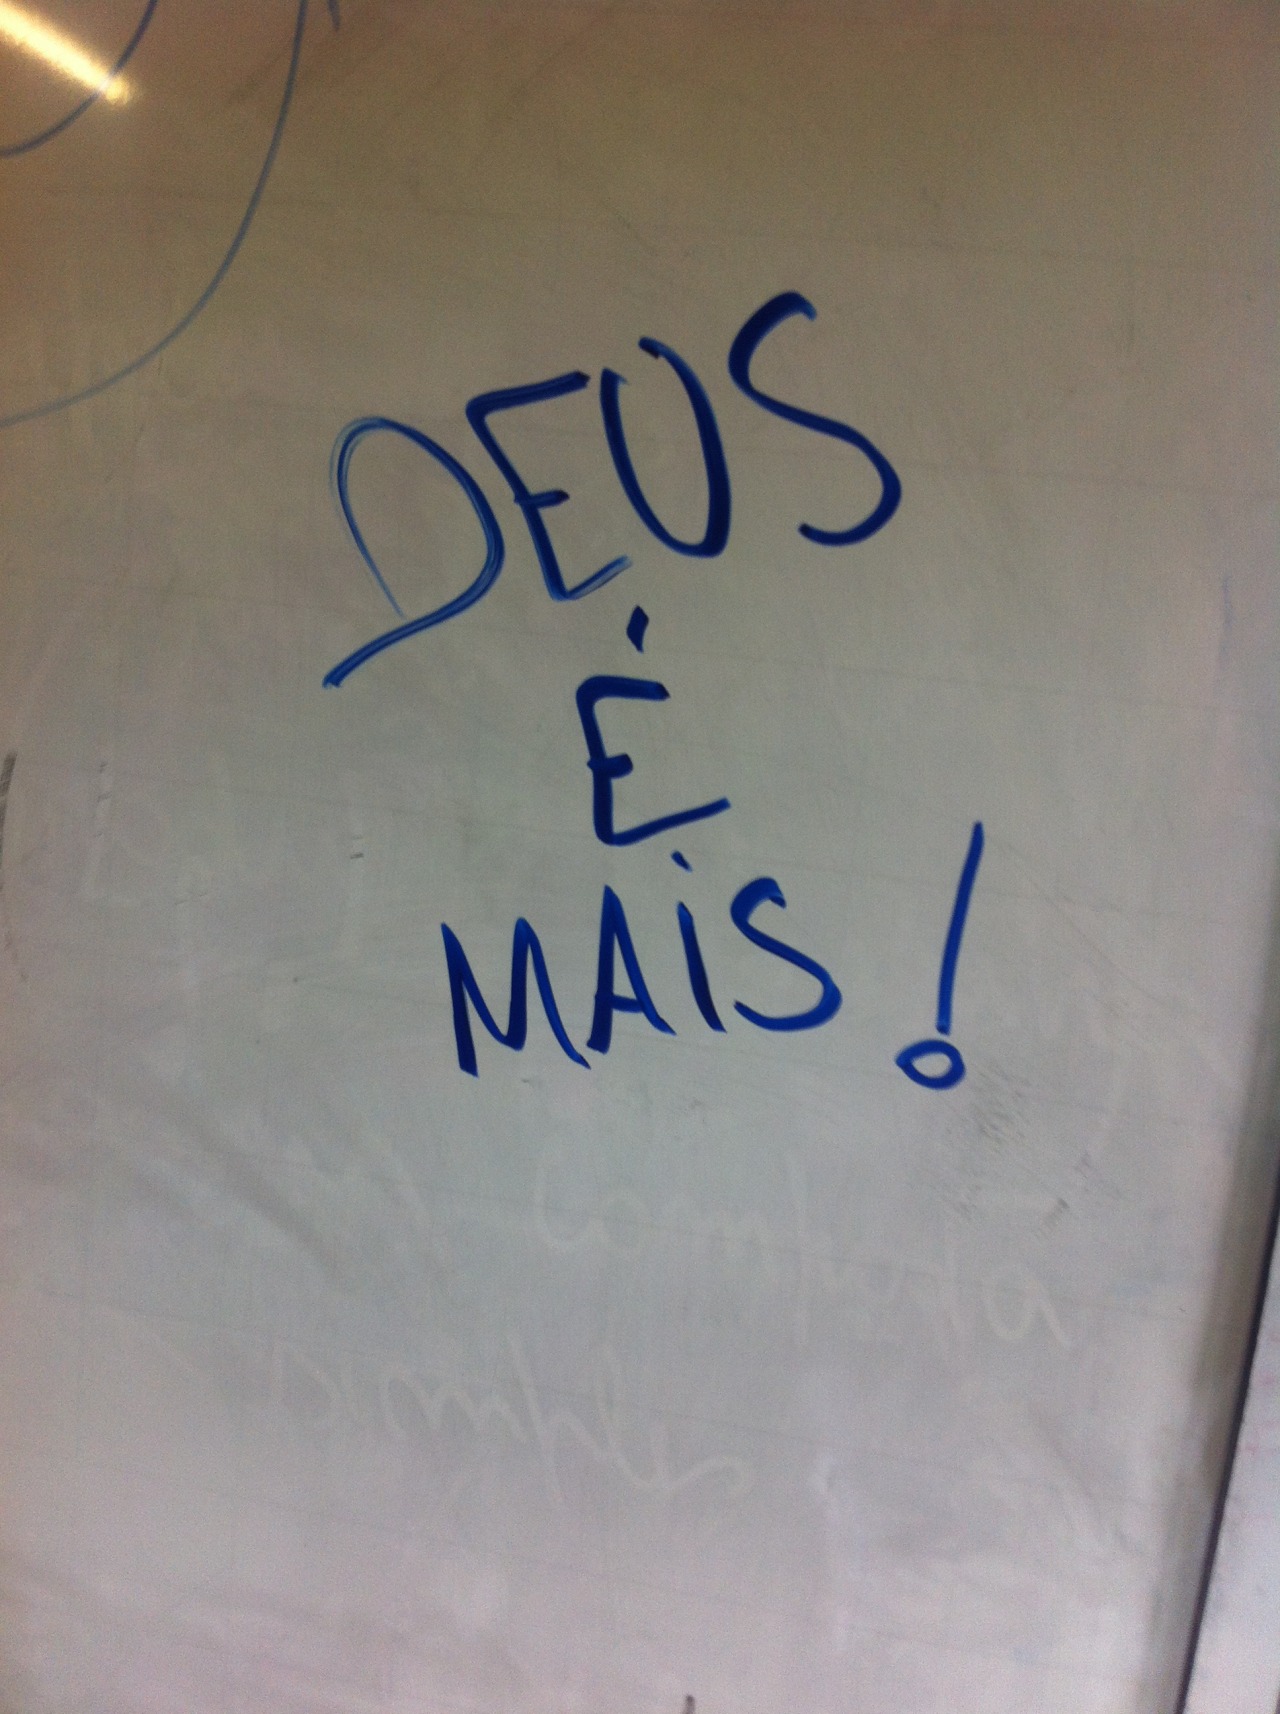 DEUS
É
MAiS!